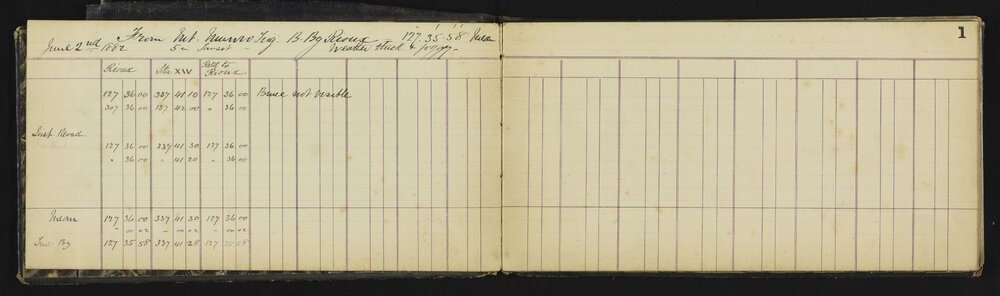 From Mt. Munro Trig. B. Bg Rioux 127° 35' 58" Mean
June 2nd 1882 5m Sunset - Weather thick & foggy.
1
Rioux Stn XXV Retd to Rioux
127 36 00 337 41 10 127 36 00 Bruce not visible
307 36 00 157 42 00 " 36 00
Inst. Revsd.
127 36 00 337 41 30 127 36 00
" 36 00 " 41 20 " 36 00
Mean 127 36 00 337 41 30 127 36 00
- 00 02 - 00 02 - 00 02
True Bg 127 35 58 337 41 28 127 35 58